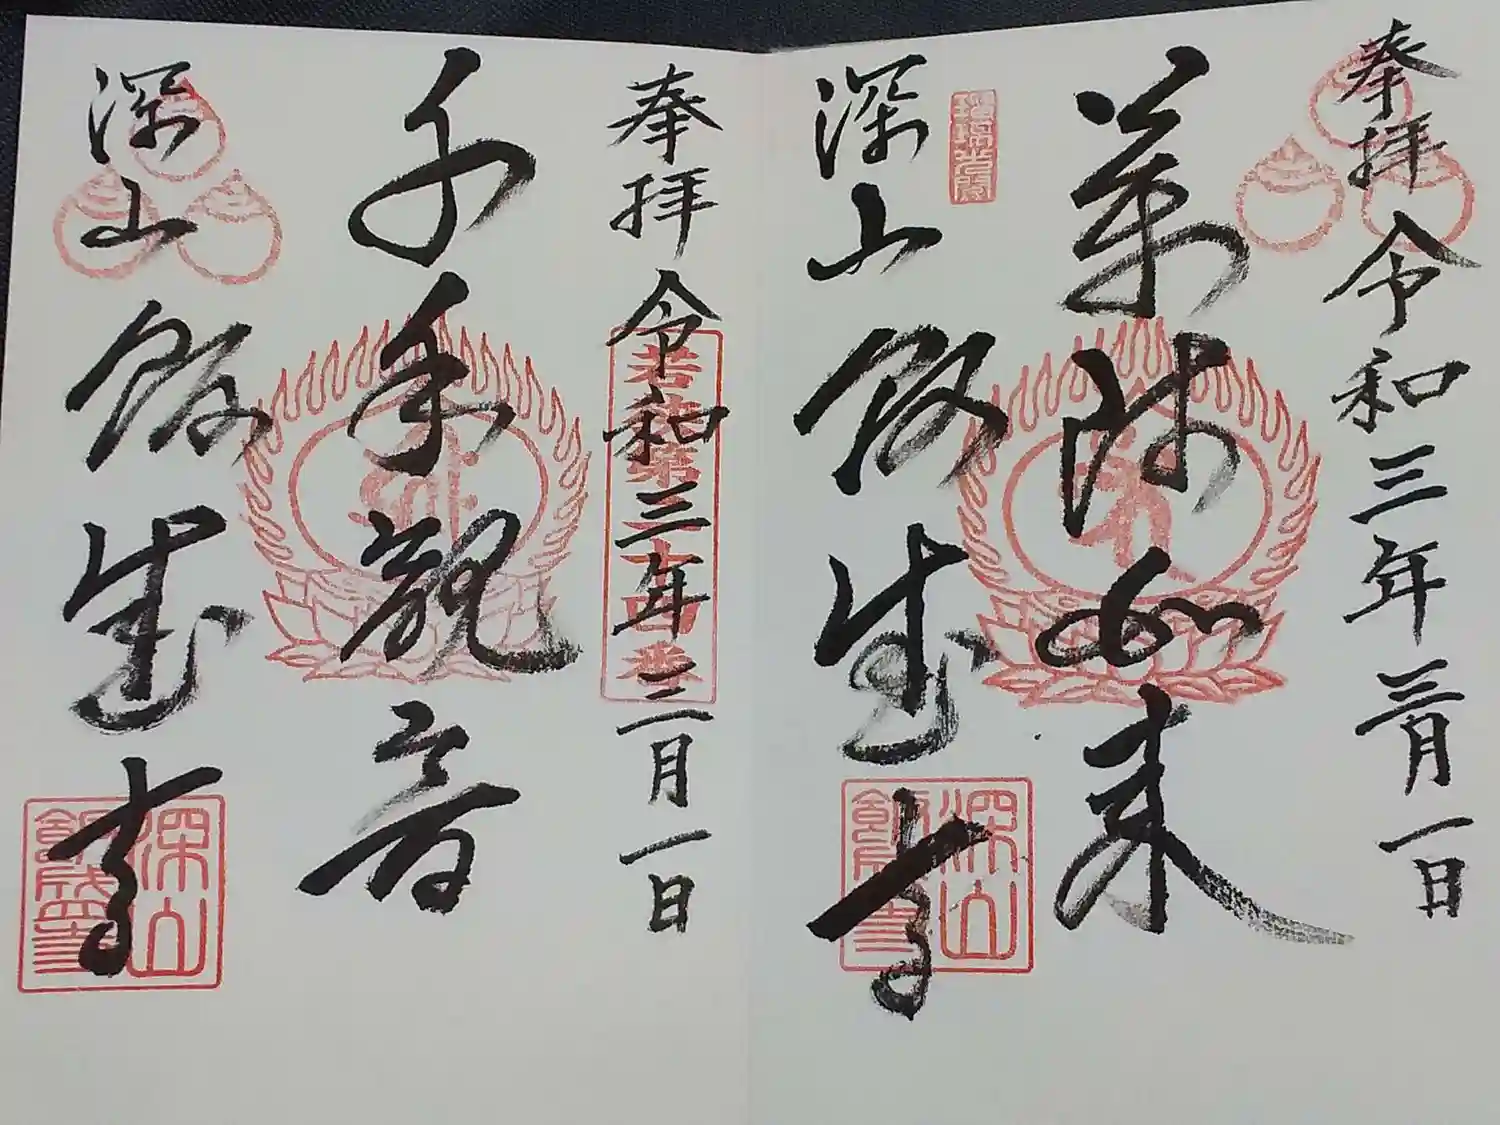 奉拝 令和三年三月一日
薬師如来
深山飯盛寺
深山
飯盛寺
奉拝 令和三年三月一日
若狭第二十四番
千手観音
深山飯盛寺
深山
飯盛寺